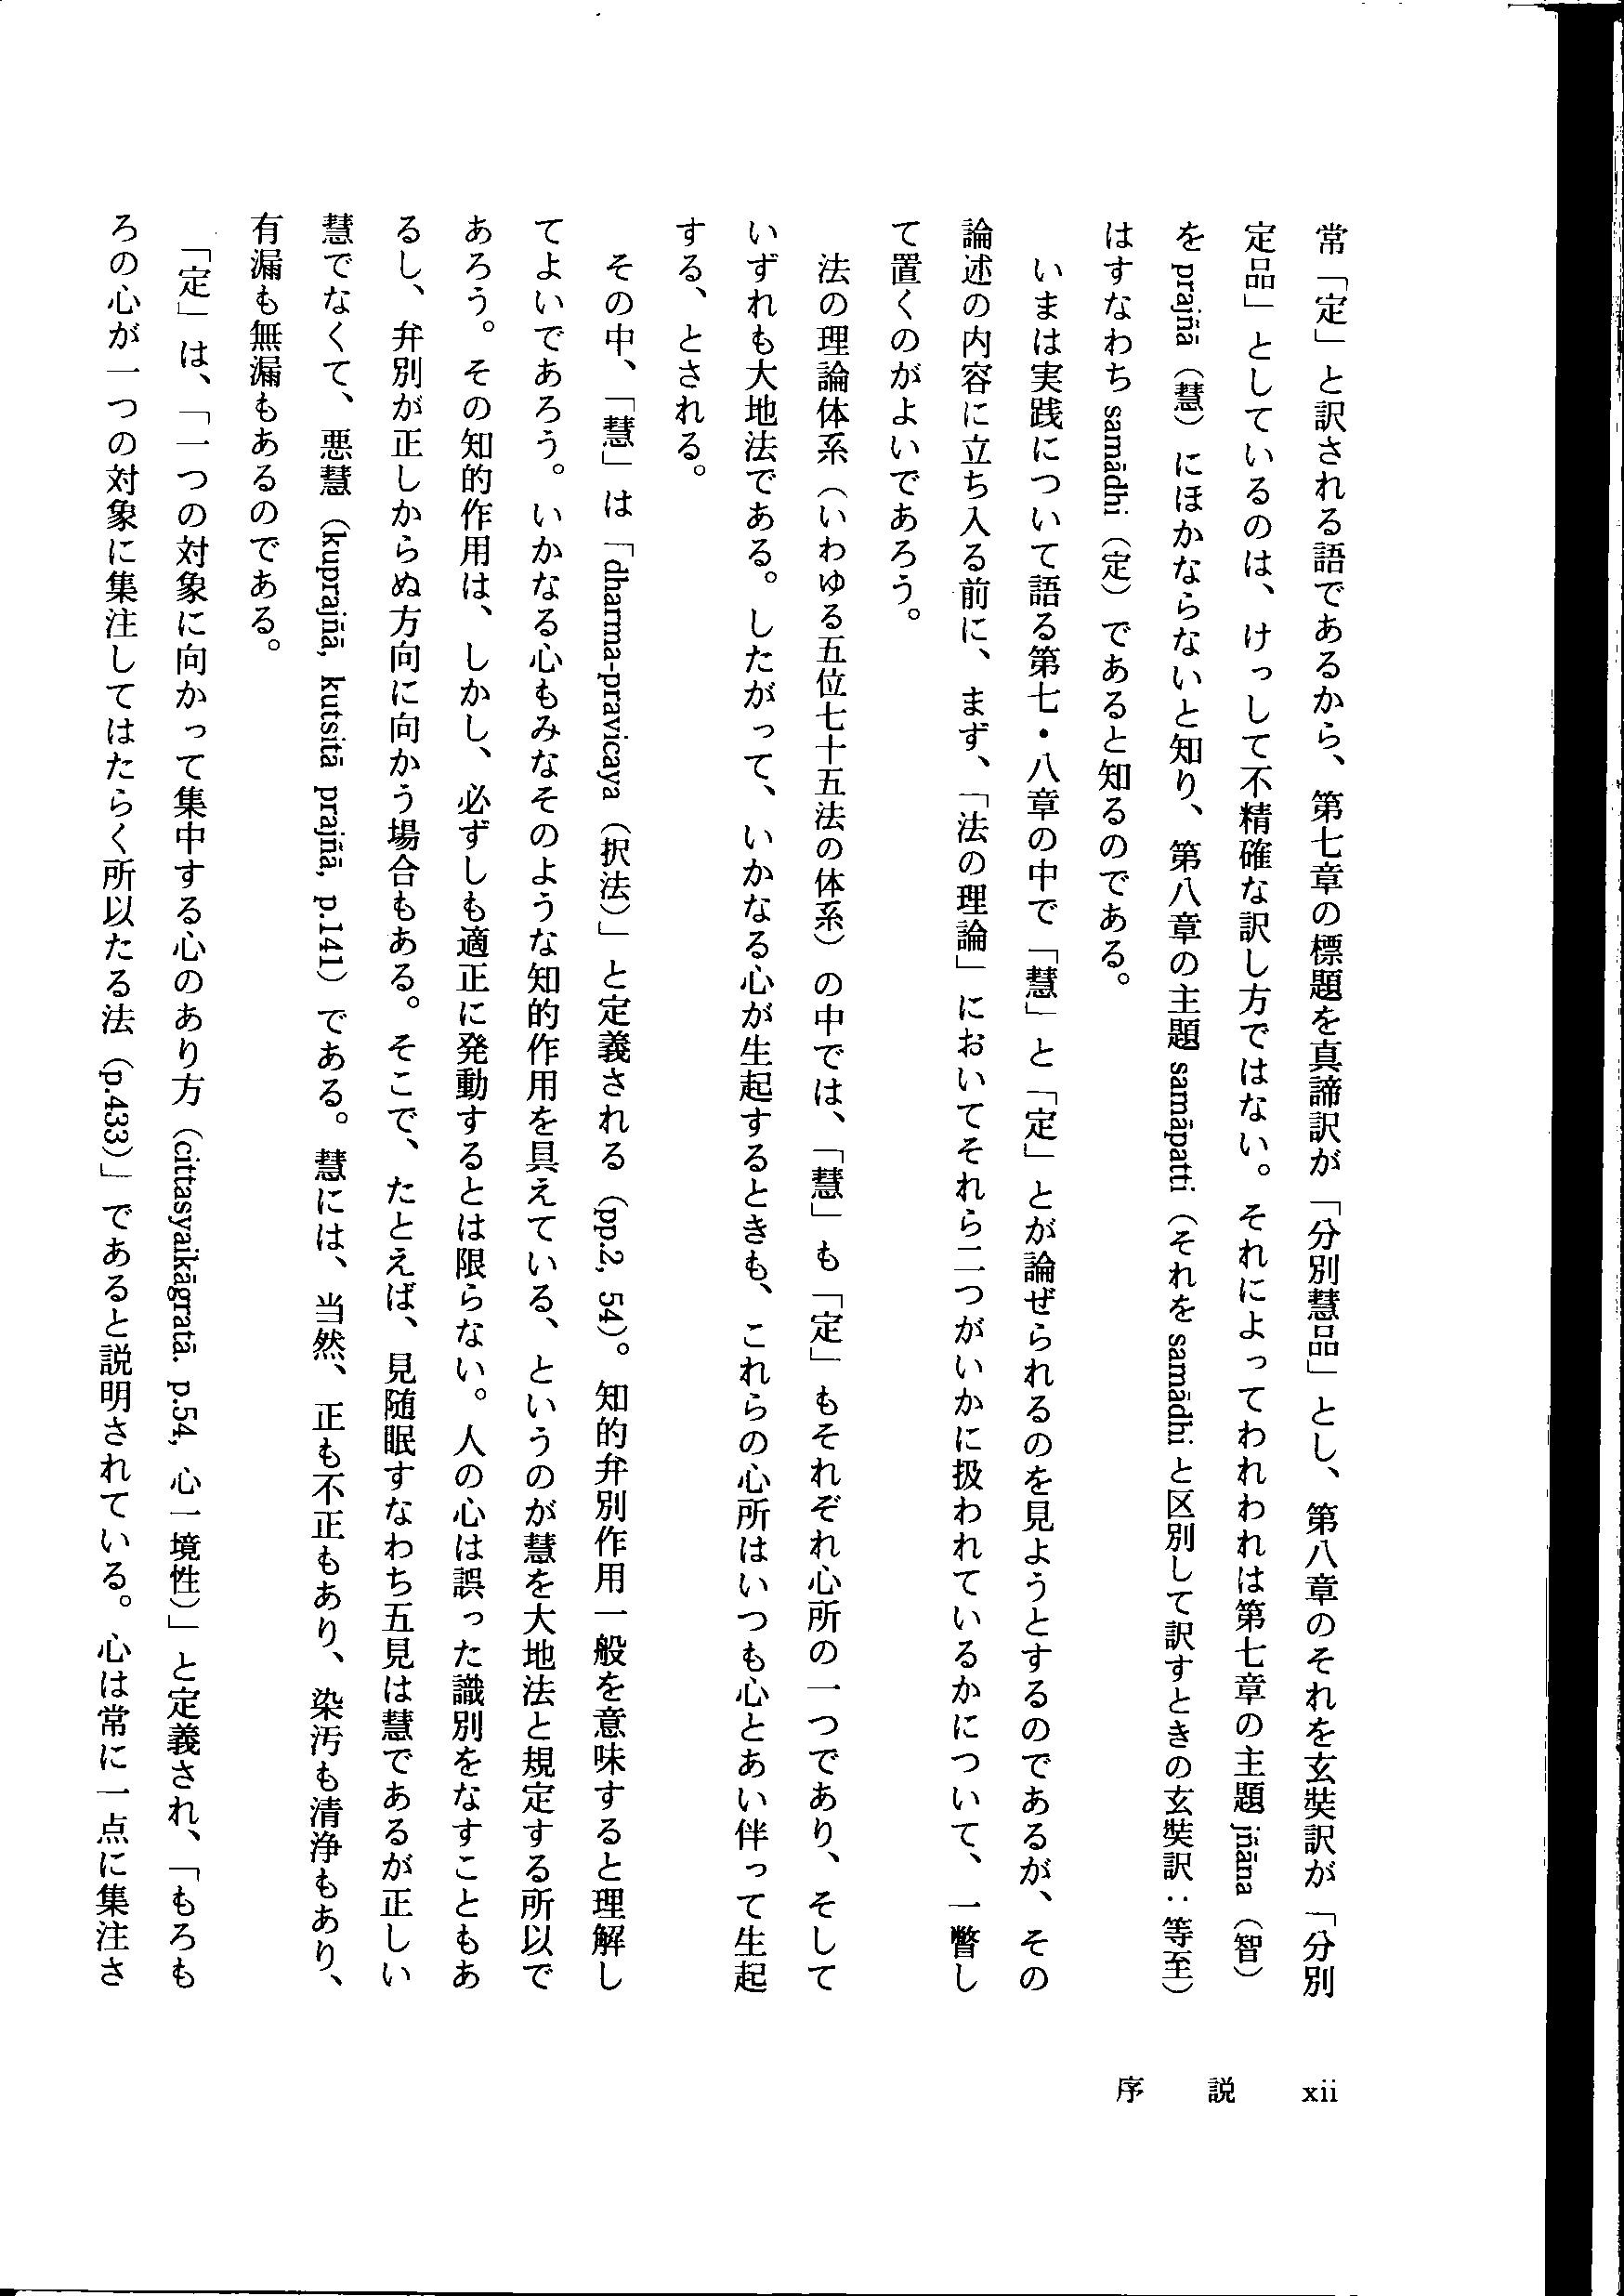 常「定」と訳される語であるから、第七章の標題を真諦訳が「分別慧品」とし、第八章のそれを玄奘訳が「分別
定品」としているのは、けっして不精確な訳し方ではない。それによってわれわれは第七章の主題 jñāna（智）
を prajñā（慧）にほかならないと知り、第八章の主題 samāpatti（それを samādhi と区別して訳すときの玄奘訳：等至）
はすなわち samādhi（定）であると知るのである。
いまは実践について語る第七・八章の中で「慧」と「定」とが論ぜられるのを見ようとするのであるが、その
論述の内容に立ち入る前に、まず、「法の理論」においてそれら二つがいかに扱われているかについて、一瞥し
て置くのがよいであろう。
法の理論体系（いわゆる五位七十五法の体系）の中では、「慧」も「定」もそれぞれ心所の一つであり、そして
いずれも大地法である。したがって、いかなる心が生起するときも、これらの心所はいつも心とあい伴って生起
する、とされる。
その中、「慧」は「dharma-pravicaya（択法）」と定義される（pp.2, 54）。知的弁別作用一般を意味すると理解し
てよいであろう。いかなる心もみなそのような知的作用を具えている、というのが慧を大地法と規定する所以で
あろう。その知的作用は、しかし、必ずしも適正に発動するとは限らない。人の心は誤った識別をなすこともあ
るし、弁別が正しからぬ方向に向かう場合もある。そこで、たとえば、見随眠すなわち五見は慧であるが正しい
慧でなくて、悪慧（kuprajñā, kutsitā prajñā, p.141）である。慧には、当然、正も不正もあり、染汚も清浄もあり、
有漏も無漏もあるのである。
「定」は、「一つの対象に向かって集中する心のあり方（cittasyaikāgratā. p.54, 心一境性）」と定義され、「もろも
ろの心が一つの対象に集注してはたらく所以たる法（p.433）」であると説明されている。心は常に一点に集注さ
序 説 xii